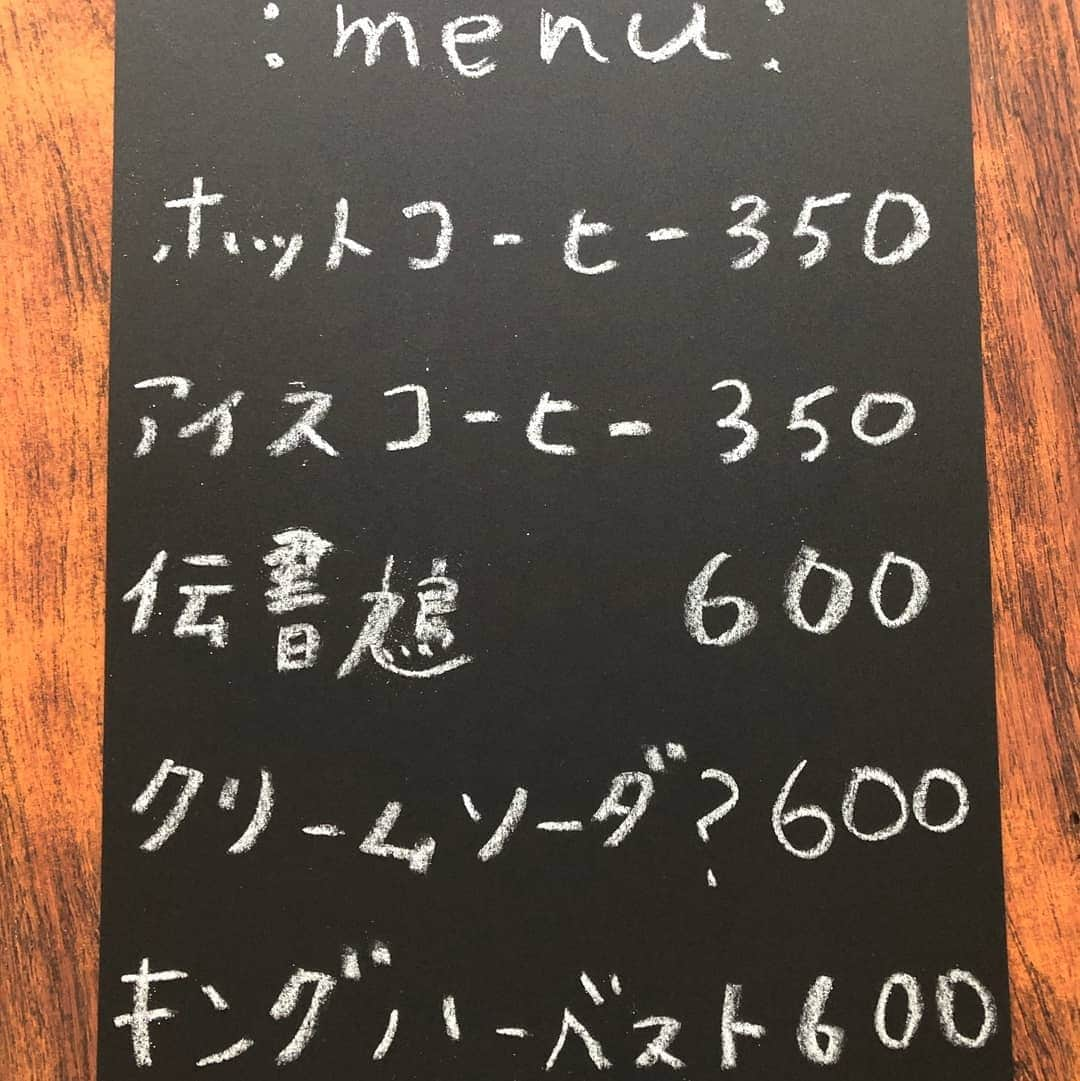 :menu:
ホットコーヒー350
アイスコーヒー350
伝書鳩 600
クリームソーダ?600
キングハーベスト600